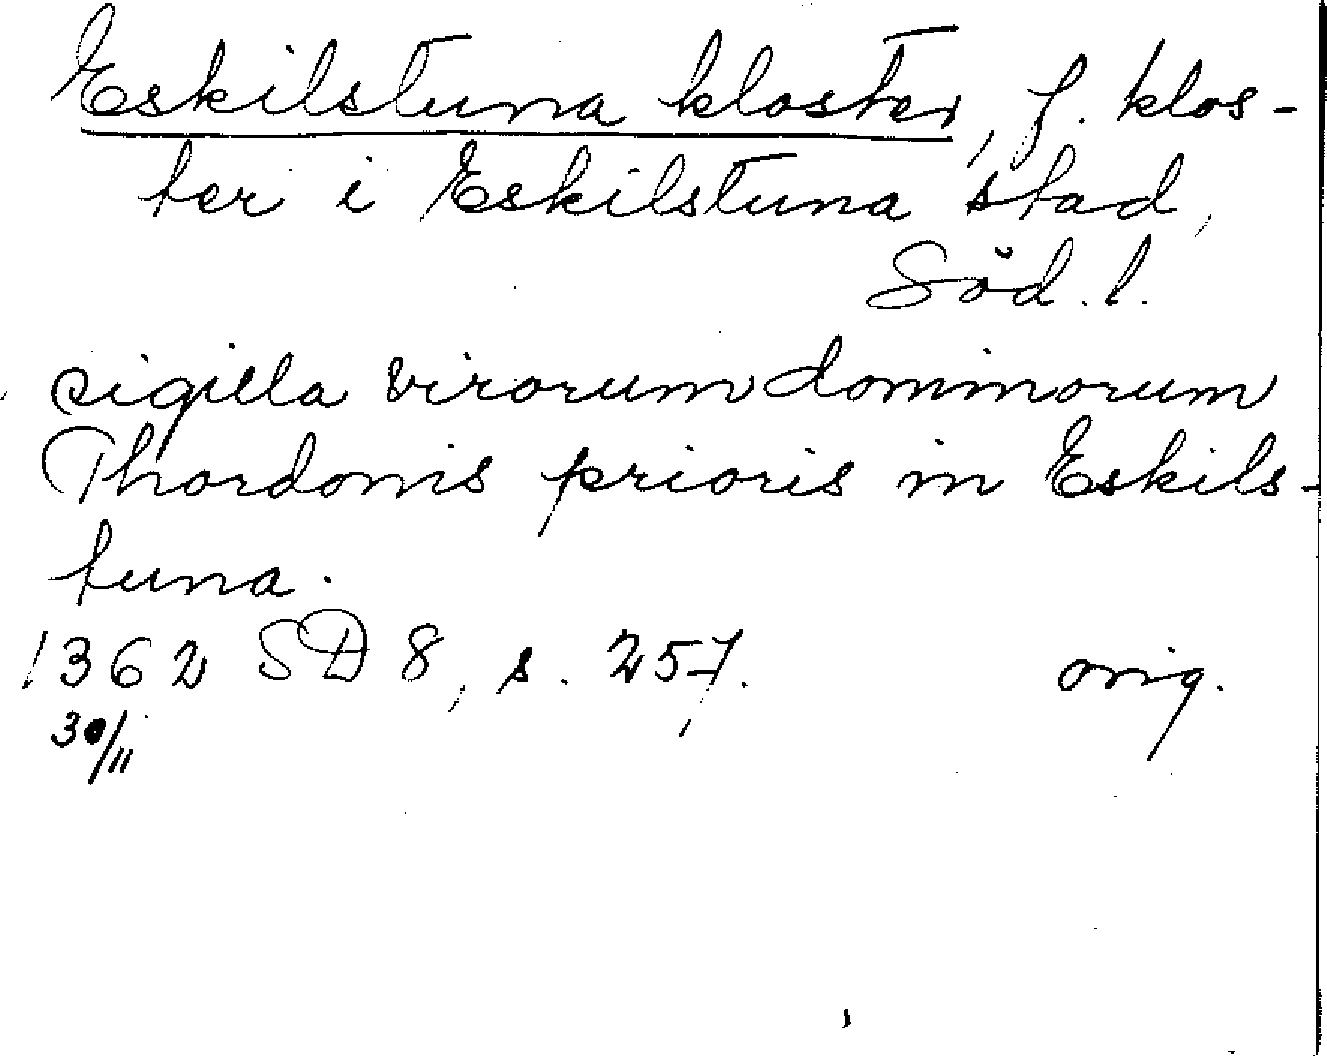 Eskilstuna kloster, f. klos-
ter i Eskilstuna stad,
Söd. l.
sigilla virorum dominorum
Thordonis prioris in Eskils-
tuna.
1362 SD 8, s. 257. orig.
30/11